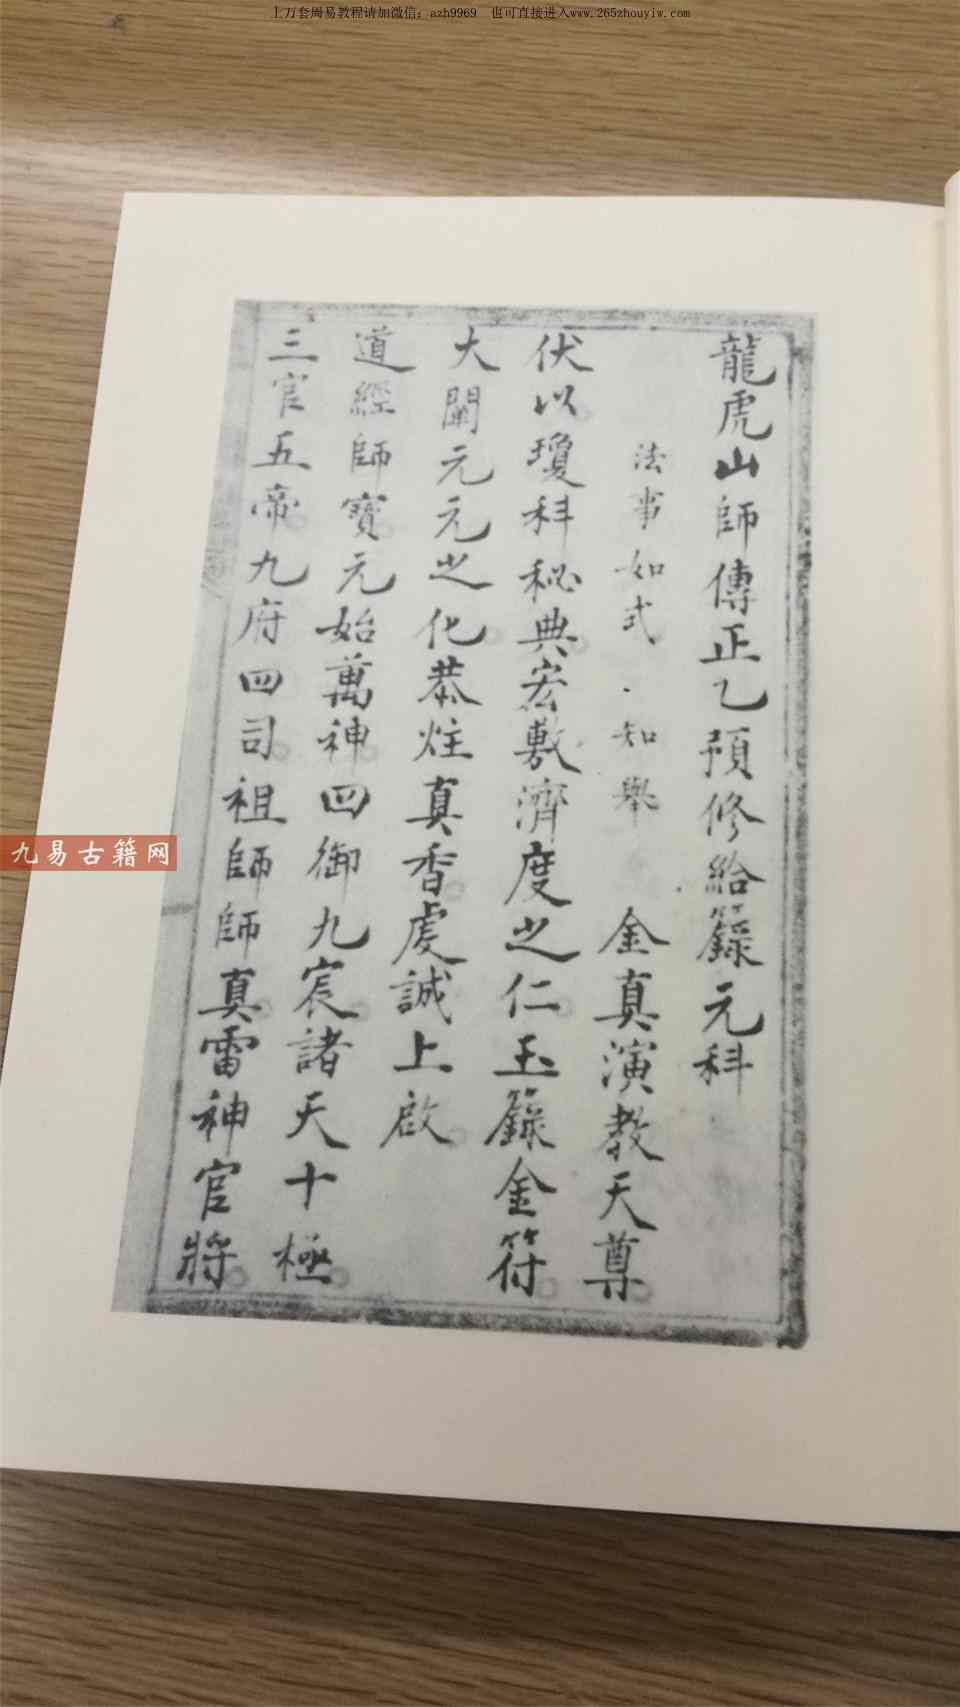 上万套周易教程请加微信：azh9969　也可直接进入www.265zhouyiw.com
龍虎山師傳正乙預修給籙元科
法事如式．知舉　金真演教天尊
伏以瓊科秘典宏敷濟度之仁玉籙金符
大闡元元之化恭炷真香虔誠上啟
道經師寶元始萬神四御九宸諸天十極
三官五帝九府四司祖師師真雷神官將
九易古籍网